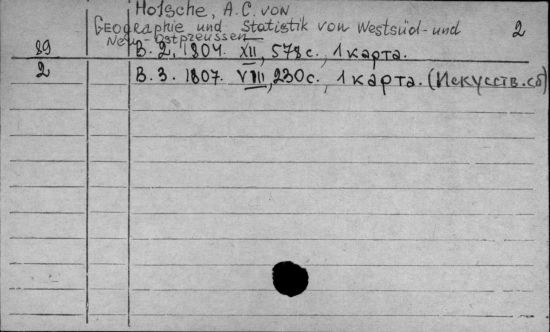 Holsche, A.C. von
Geographie und Statistik von Westsüd- und 2
Neu-Ostpreussen
89 B. 2, 1804. XII, 578 с., 1 карта.
2 B. 3. 1807. VIII, 230 с., 1 карта. (Искусств. сб)